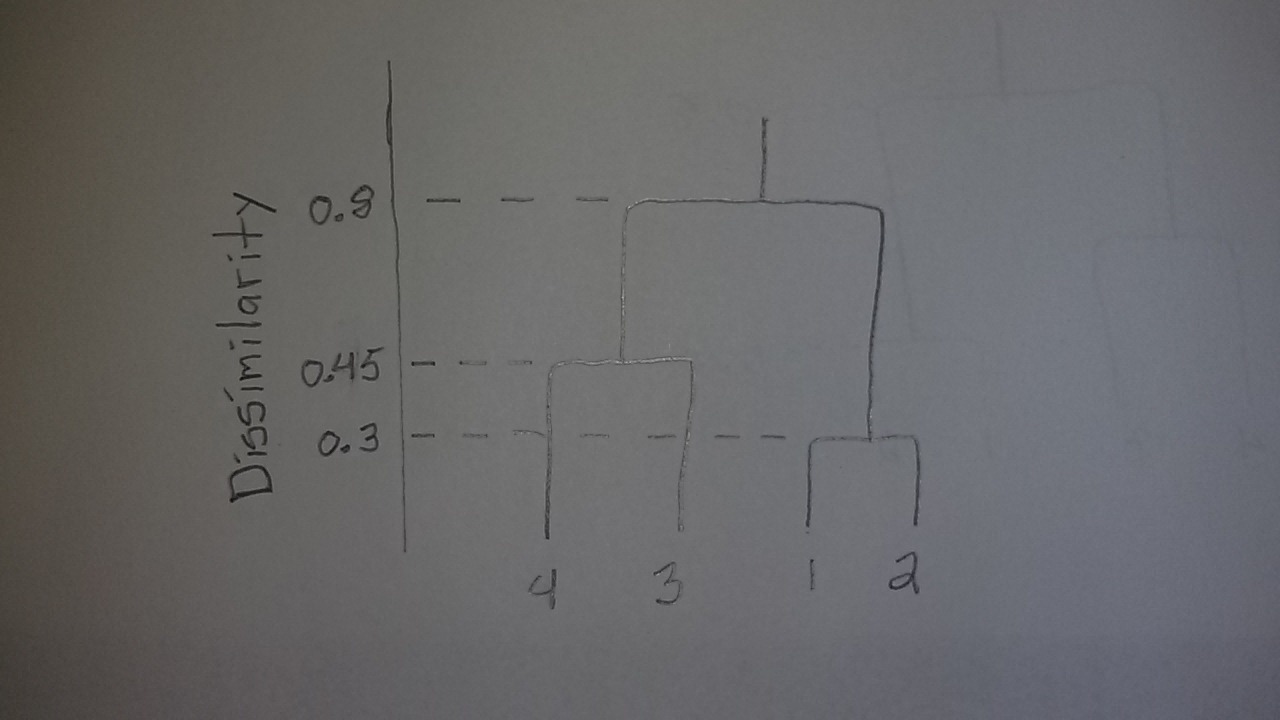 Dissimilarity
0.8
0.45
0.3
4 3 1 2